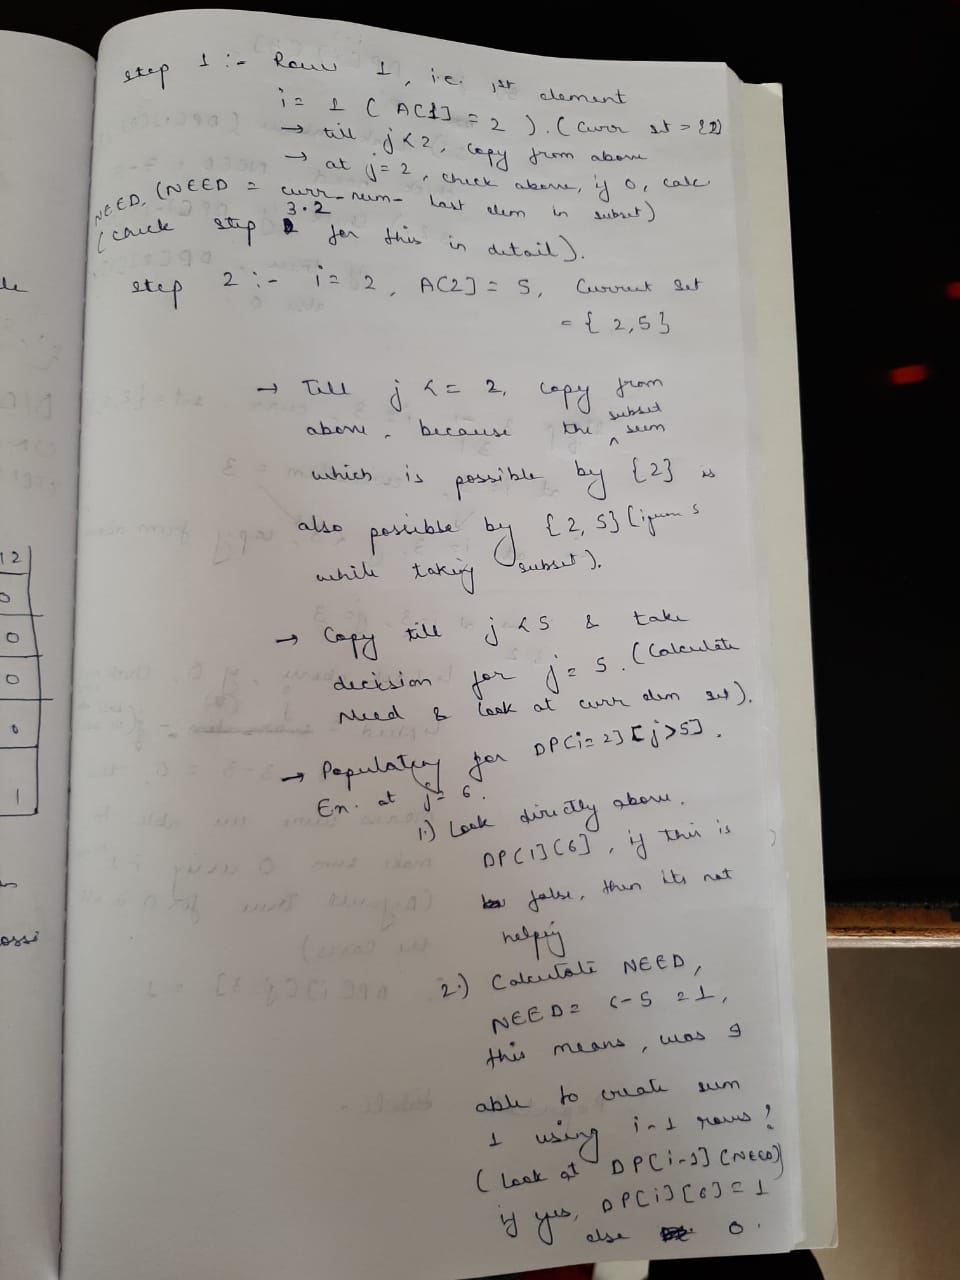 step 1 :- Row 1, i.e. 1st element
i = 1 ( A[1] = 2 ). ( curr set = {2})
→ till j < 2, copy from above
→ at j = 2, check above, if 0, calc
NEED. (NEED = curr-num - last elem in subset)
3.2
(check step for this in detail).
step 2 :- i = 2, A[2] = 5, Current Set
= { 2, 5 }
→ Till j <= 2, copy from
above, because the subset sum
which is possible by {2} is
also possible by { 2, 5} (ignore 5
while taking subset).
→ Copy till j < 5 & take
decision for j = 5. (Calculate
Need & look at curr elem set).
→ Populating for DP[i=2][j>5].
Ex. at j = 6.
1.) Look directly above.
DP[1][6], if this is
false, then its not
helping
2.) Calculate NEED,
NEED = 6-5 = 1,
this means, was I
able to create sum
1 using i-1 rows?
( Look at DP[i-1][NEED]
if yes, DP[i][6] = 1
else 0.
le
12
0
0
0
0
1
ossi